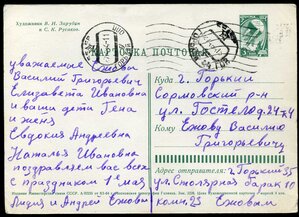 Художники В. И. Зарубин
и С. К. Русаков.
КАРТОЧКА ПОЧТОВАЯ
уважаемые Ежовы
Василий Григорьевич
Елизавета Ивановна
и ваши дети Гена
и женя
Евдокия Андреевна
Наталья Ивановна
поздравляем вас всех
с праздником 1е мая
Лидия и Андрей Ежовы
Куда г. Горький
Сормовский р-н
ул.
Кому Ежову Василию
Григорьевичу
Адрес отправителя: г. Горький 35
ул. Столярная барак 10
комн. 23 Ежовым